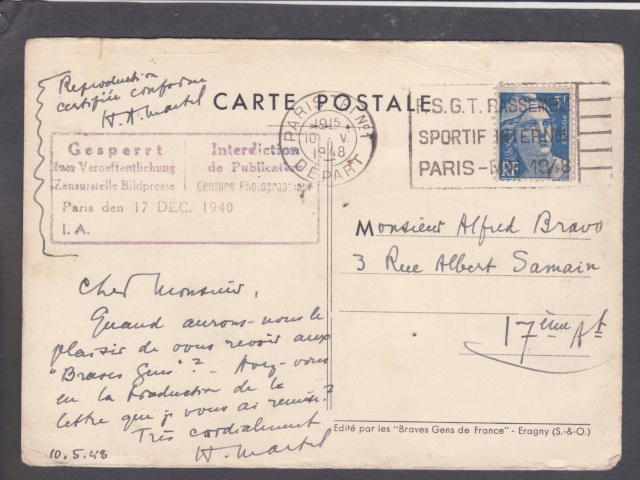 Reproduction
certifiée conforme
H. A. Martel
CARTE POSTALE
PARIS
1915
10 V.
1948
DEPART
F.S.G.T. RASSEMB
SPORTIF INTERN
PARIS - 1948
RF
Gesperrt
fuer Veroeffentlichung
Zensurstelle Bildpresse
Interdiction
de Publication
Censure Photographique
Paris den 17 DÉC. 1940
I. A.
Monsieur Alfred Bravo
3 Rue Albert Samain
17ème Art
Cher Monsieur,
Quand aurons-nous le
plaisir de vous revoir aux
"Braves Gens"? - Avez-vous
eu la traduction de la
lettre que je vous ai remise?
Très cordialement
H. Martel
10.5.48
Edité par les "Braves Gens de France" - Eragny (S.-&-O.)